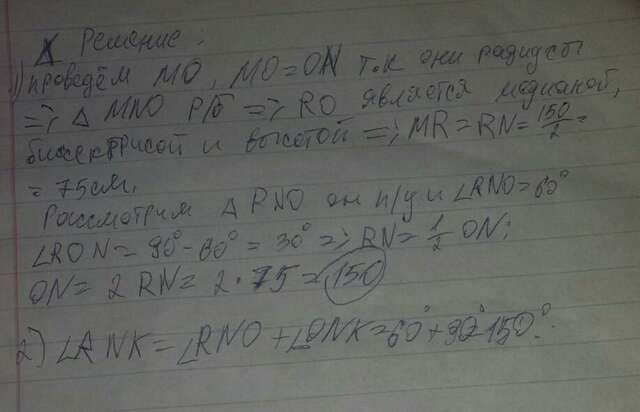 Решение:
1) проведём MO, MO=ON т.к они радиусы
=> △ MNO р/б => RO является медианой,
биссектрисой и высотой => MR = RN = 150/2 =
= 75см.
Рассмотрим △ RNO он п/у и ∠RNO = 60°
∠RON = 90° - 60° = 30° => RN = 1/2 ON;
ON = 2 RN = 2 · 75 = 150
2) ∠RNK = ∠RNO + ∠ONK = 60° + 90° 150°.